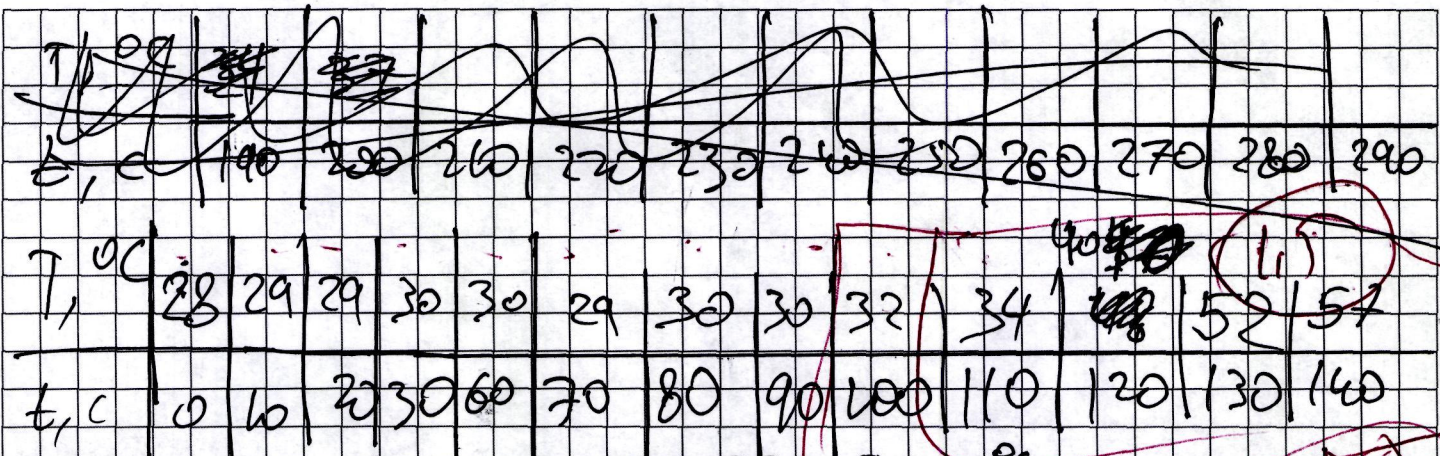 T, °C
t, c 190 200 210 220 230 240 250 260 270 280 290
40 1,5
T, °C 28 29 29 30 30 29 30 30 32 34 52 57
t, c 0 10 20 30 60 70 80 90 100 110 120 130 140